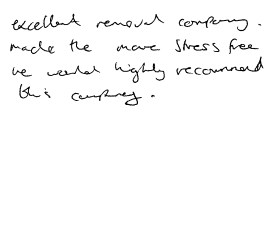 excellent removal company.
made the move stress free
we would highly recommend
this company.